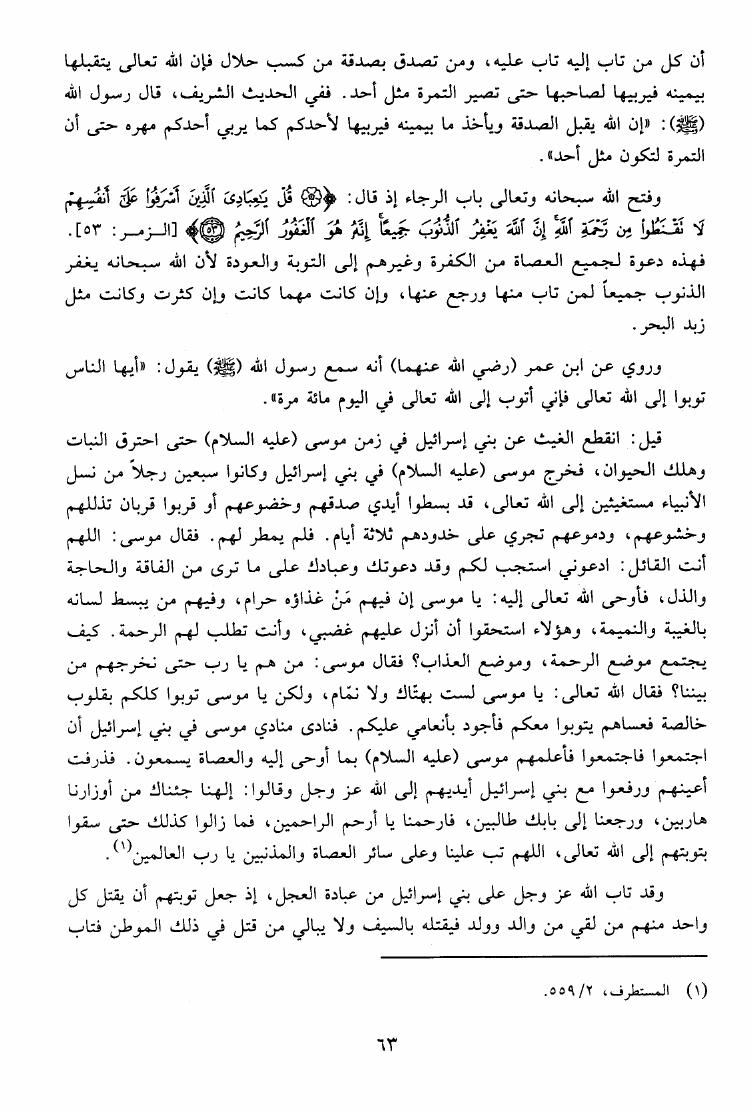 أن كل من تاب إليه تاب عليه، ومن تصدق بصدقة من كسب حلال فإن الله تعالى يتقبلها
بيمينه فيربيها لصاحبها حتى تصير التمرة مثل أحد. ففي الحديث الشريف، قال رسول الله
(ﷺ): «إن الله يقبل الصدقة ويأخذ ما بيمينه فيربيها لأحدكم كما يربي أحدكم مهره حتى أن
التمرة لتكون مثل أحد».
وفتح الله سبحانه وتعالى باب الرجاء إذ قال: ﴿۞ قُلْ يَٰعِبَادِىَ ٱلَّذِينَ أَسْرَفُوا۟ عَلَىٰٓ أَنفُسِهِمْ
لَا تَقْنَطُوا۟ مِن رَّحْمَةِ ٱللَّهِ ۚ إِنَّ ٱللَّهَ يَغْفِرُ ٱلذُّنُوبَ جَمِيعًا ۚ إِنَّهُۥ هُوَ ٱلْغَفُورُ ٱلرَّحِيمُ ٥٣﴾ [الـزمـر: ٥٣].
فهذه دعوة لجميع العصاة من الكفرة وغيرهم إلى التوبة والعودة لأن الله سبحانه يغفر
الذنوب جميعاً لمن تاب منها ورجع عنها، وإن كانت مهما كانت وإن كثرت وكانت مثل
زبد البحر.
وروي عن ابن عمر (رضي الله عنهما) أنه سمع رسول الله (ﷺ) يقول: «أيها الناس
توبوا إلى الله تعالى فإني أتوب إلى الله تعالى في اليوم مائة مرة».
قيل: انقطع الغيث عن بني إسرائيل في زمن موسى (عليه السلام) حتى احترق النبات
وهلك الحيوان، فخرج موسى (عليه السلام) في بني إسرائيل وكانوا سبعين رجلاً من نسل
الأنبياء مستغيثين إلى الله تعالى، قد بسطوا أيدي صدقهم وخضوعهم أو قربوا قربان تذللهم
وخشوعهم، ودموعهم تجري على خدودهم ثلاثة أيام. فلم يمطر لهم. فقال موسى: اللهم
أنت القائل: ادعوني استجب لكم وقد دعوتك وعبادك على ما ترى من الفاقة والحاجة
والذل، فأوحى الله تعالى إليه: يا موسى إن فيهم مَنْ غذاؤه حرام، وفيهم من يبسط لسانه
بالغيبة والنميمة، وهؤلاء استحقوا أن أنزل عليهم غضبي، وأنت تطلب لهم الرحمة. كيف
يجتمع موضع الرحمة، وموضع العذاب؟ فقال موسى: من هم يا رب حتى نخرجهم من
بيننا؟ فقال الله تعالى: يا موسى لست بهتّاك ولا نمّام، ولكن يا موسى توبوا كلكم بقلوب
خالصة فعساهم يتوبوا معكم فأجود بأنعامي عليكم. فنادى منادي موسى في بني إسرائيل أن
اجتمعوا فاجتمعوا فأعلمهم موسى (عليه السلام) بما أوحى إليه والعصاة يسمعون. فذرفت
أعينهم ورفعوا مع بني إسرائيل أيديهم إلى الله عز وجل وقالوا: إلهنا جئناك من أوزارنا
هاربين، ورجعنا إلى بابك طالبين، فارحمنا يا أرحم الراحمين، فما زالوا كذلك حتى سقوا
بتوبتهم إلى الله تعالى، اللهم تب علينا وعلى سائر العصاة والمذنبين يا رب العالمين(١).
وقد تاب الله عز وجل على بني إسرائيل من عبادة العجل، إذ جعل توبتهم أن يقتل كل
واحد منهم من لقي من والد وولد فيقتله بالسيف ولا يبالي من قتل في ذلك الموطن فتاب
(١) المستطرف، ٥٥٩/٢.
٦٣